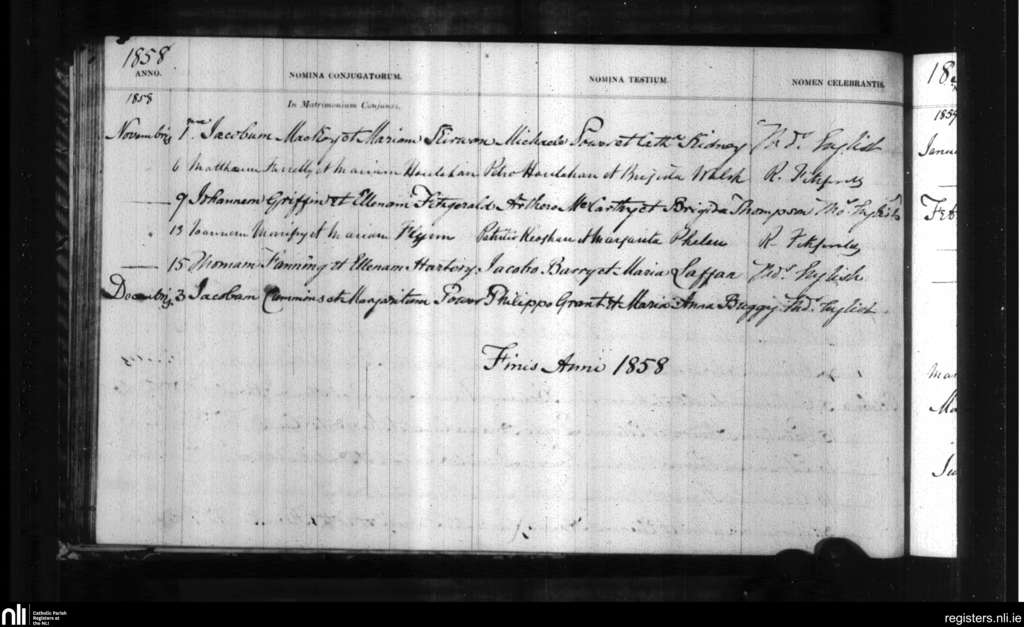 1858
ANNO.
NOMINA CONJUGATORUM.
NOMINA TESTIUM.
NOMEN CELEBRANTIS.
1858
In Matrimonium Conjunxi.
Novembris 1ma Jacobum Mackey et Mariam Michaele Power et Cathe Kidney Thos English
6 Matthaeum Farrelly et Mariam Houlahan Petro Houlahan et Brigida Walsh R.
9 Johannem Griffin et Ellenam Fitzgerald Arthoro McCarthy et Brigida Thompson Thos English
13 Joannem et Mariam Flynn Patritio Keoghan et Margarita Phelan R.
15 Thomam Fanning et Ellenam Jacobo Barry et Maria Laffan Thos English
Decembris 3 Jacobum Commins et Margaritam Power Philippo Grant et Maria Anna Buggy Thos English
Finis Anni 1858
18
1859
Janu
Feb
Mar
Ma
nli
Catholic Parish
Registers at
the NLI
registers.nli.ie